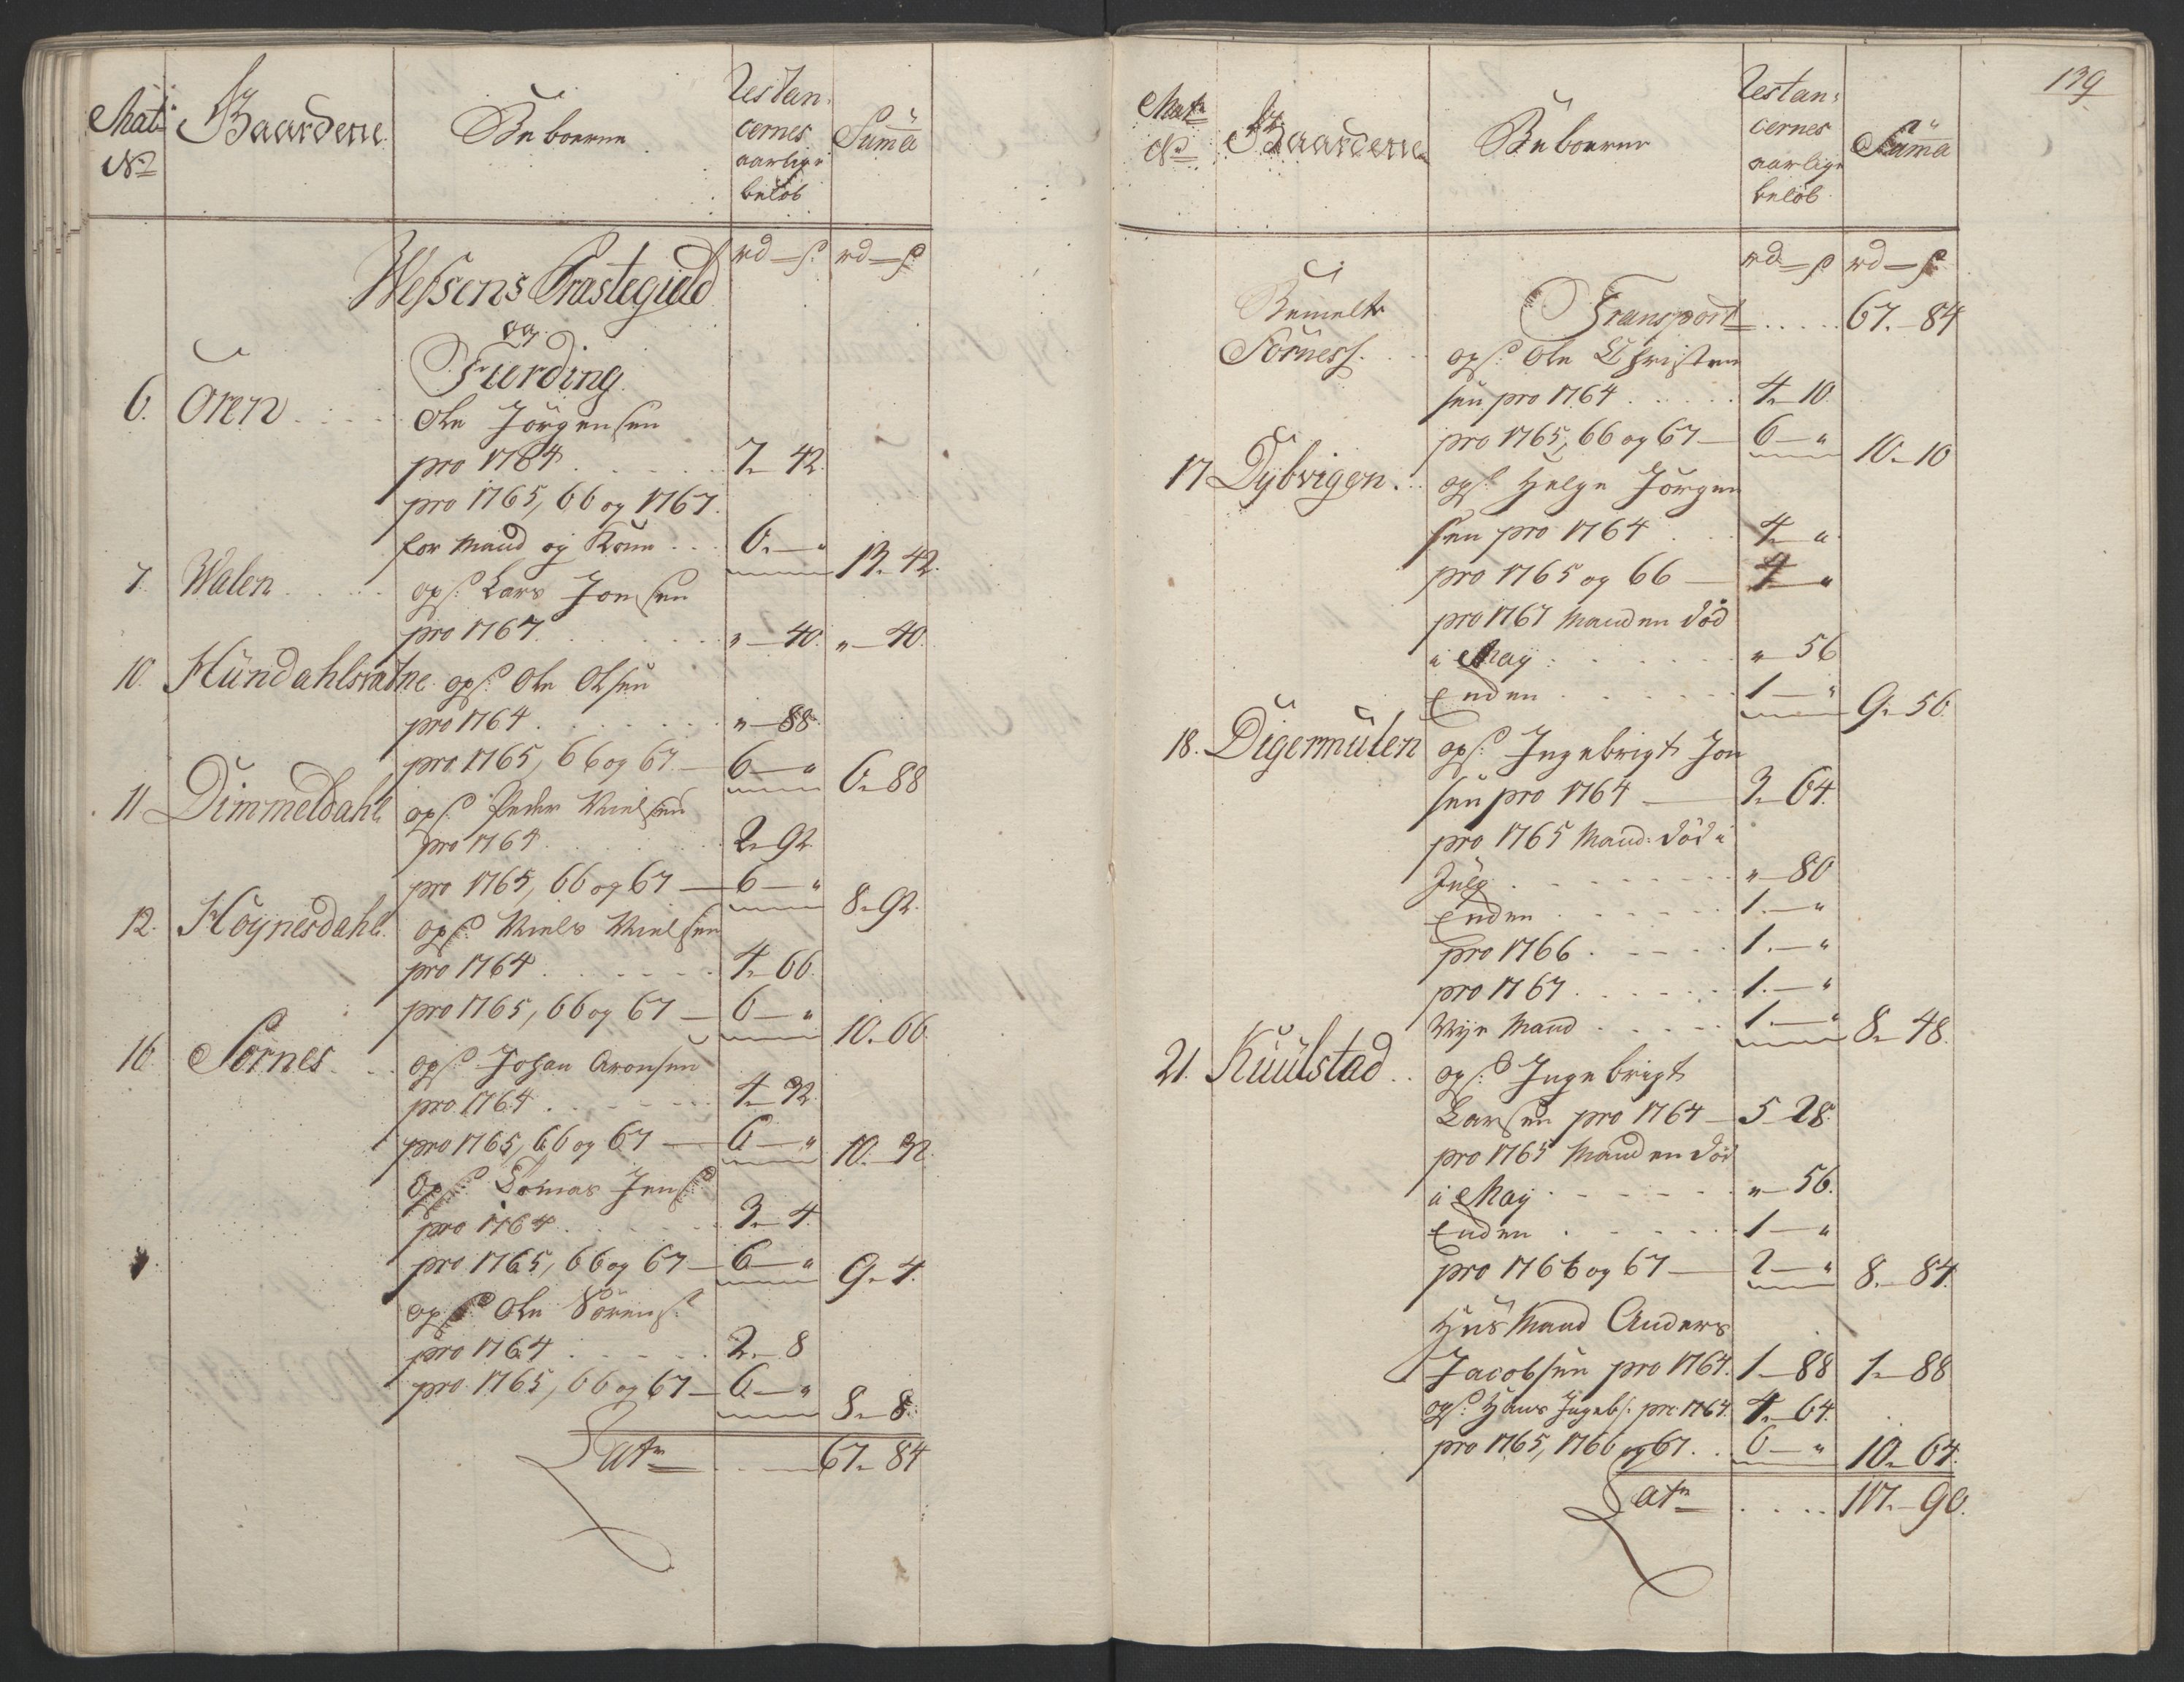 Mat: Gaardene. Beboerne. Restan- Suma
No cernes
aarlige
beløb
rd — s. rd — s
Wefsens Præstegield
og
Fierding
6. Oren . . . Ole Jörgensen
pro 1764 . . . . . 7. 42.
pro 1765, 66 og 1767.
for Mand og Kone . . 6. — " 13. 42.
7. Walen . . . . ops: Lars Jonsen
pro 1767 . . . . . . " — 40. " — 40.
10. Hundahlsvatne ops: Ole Olsen
pro 1764 . . . . . . " — 88.
pro 1765, 66 og 67. — 6 — " 6. 88
11 Dimmeldahl ops: Peder Nielsen
pro 1764 . . . . . 2. 92.
pro 1765, 66 og 67 — 6 — " 8. 92.
12. Höynesdahl. ops: Niels Nielsen
pro 1764 . . . . . . 4. 66.
pro 1765, 66 og 67 — 6 — " 10. 66.
16. Sörnes . . . ops: Johan Aronsen
pro 1764 . . . . . . 4. 32.
pro 1765, 66 og 67 — 6 — " 10. 32.
Ops: Tomas Jens:
pro 1764 . . . . . . 3. 4.
pro 1765, 66 og 67 — 6 — " 9. 4.
ops: Ole Sörens:
pro 1764 . . . . . 2. — 8
pro 1765, 66 og 67 — 6 — " 8. — 8.
Lat. . . . — 67. 84
139
Mat: Gaardene Beboerne Restan- Suma
No cernes
aarlige
beløb
rd — s rd — s
Transport . . . . . 67. — 84
Sörness. . . ops: Ole Christen
sen pro 1764 . . . . . 4. 10.
pro 1765, 66 og 67 — 6 — " 10. 10
17 Dybvigen . . ops: Helge Jörgen
sen pro 1764 . . . 4 — "
pro 1765 og 66 — 4 — "
pro 1767 Manden död
i May . . . . . . . " 56
Enden . . . . . . 1 — " 9. 56.
18. Digermulen ops: Ingebrigt Jon
sen pro 1764 — 3. 64.
pro 1765 Mand: död i
July . . . . . . . . " — 80
Enden . . . . . . . 1. — "
pro 1766 . . . . . 1. — "
pro 1767 . . . . . 1. — "
Nye Mand . . . . . 1. — " 8. 48.
21. Kuulstad . . ops: Ingebrigt
Larsen pro 1764 — 5. 28.
pro 1765 Manden död
i May . . . . . . " — 56.
Enden . . . . . . . 1 — "
pro 1766 og 67 — 2 — " 8. — 84.
Huus Mand Anders
Jacobsen pro 1764. 1 — 88 1. — 88
ops: Hans Ingebs: pro 1764. 4. 64.
pro 1765, 1766 og 67 . . 6 — " 10. 64.
Lat. . . . . 117. — 90.